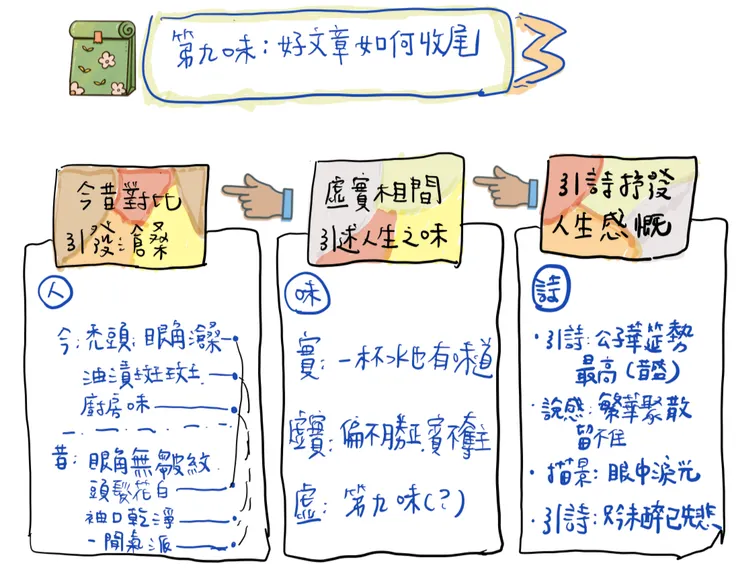 第九味：好文章如何收尾
今昔對比
引發滄桑
虛實相間
引述人生之味
引詩抒發
人生感慨
人
今：禿頭，眼角濁
油漬斑斑
廚房味
昔：眼角無皺紋
頭髮花白
袖口乾淨
一閒氣派
味
實：一杯水也有味道
虛實：偏不勝正，賓不奪主
虛：第九味(？)
詩
・引詩：公子華筵勢
最高(昔盛)
・說感：繁華聚散
留不住
・描景：眼中淚光
・引詩：吟未醉已先悲